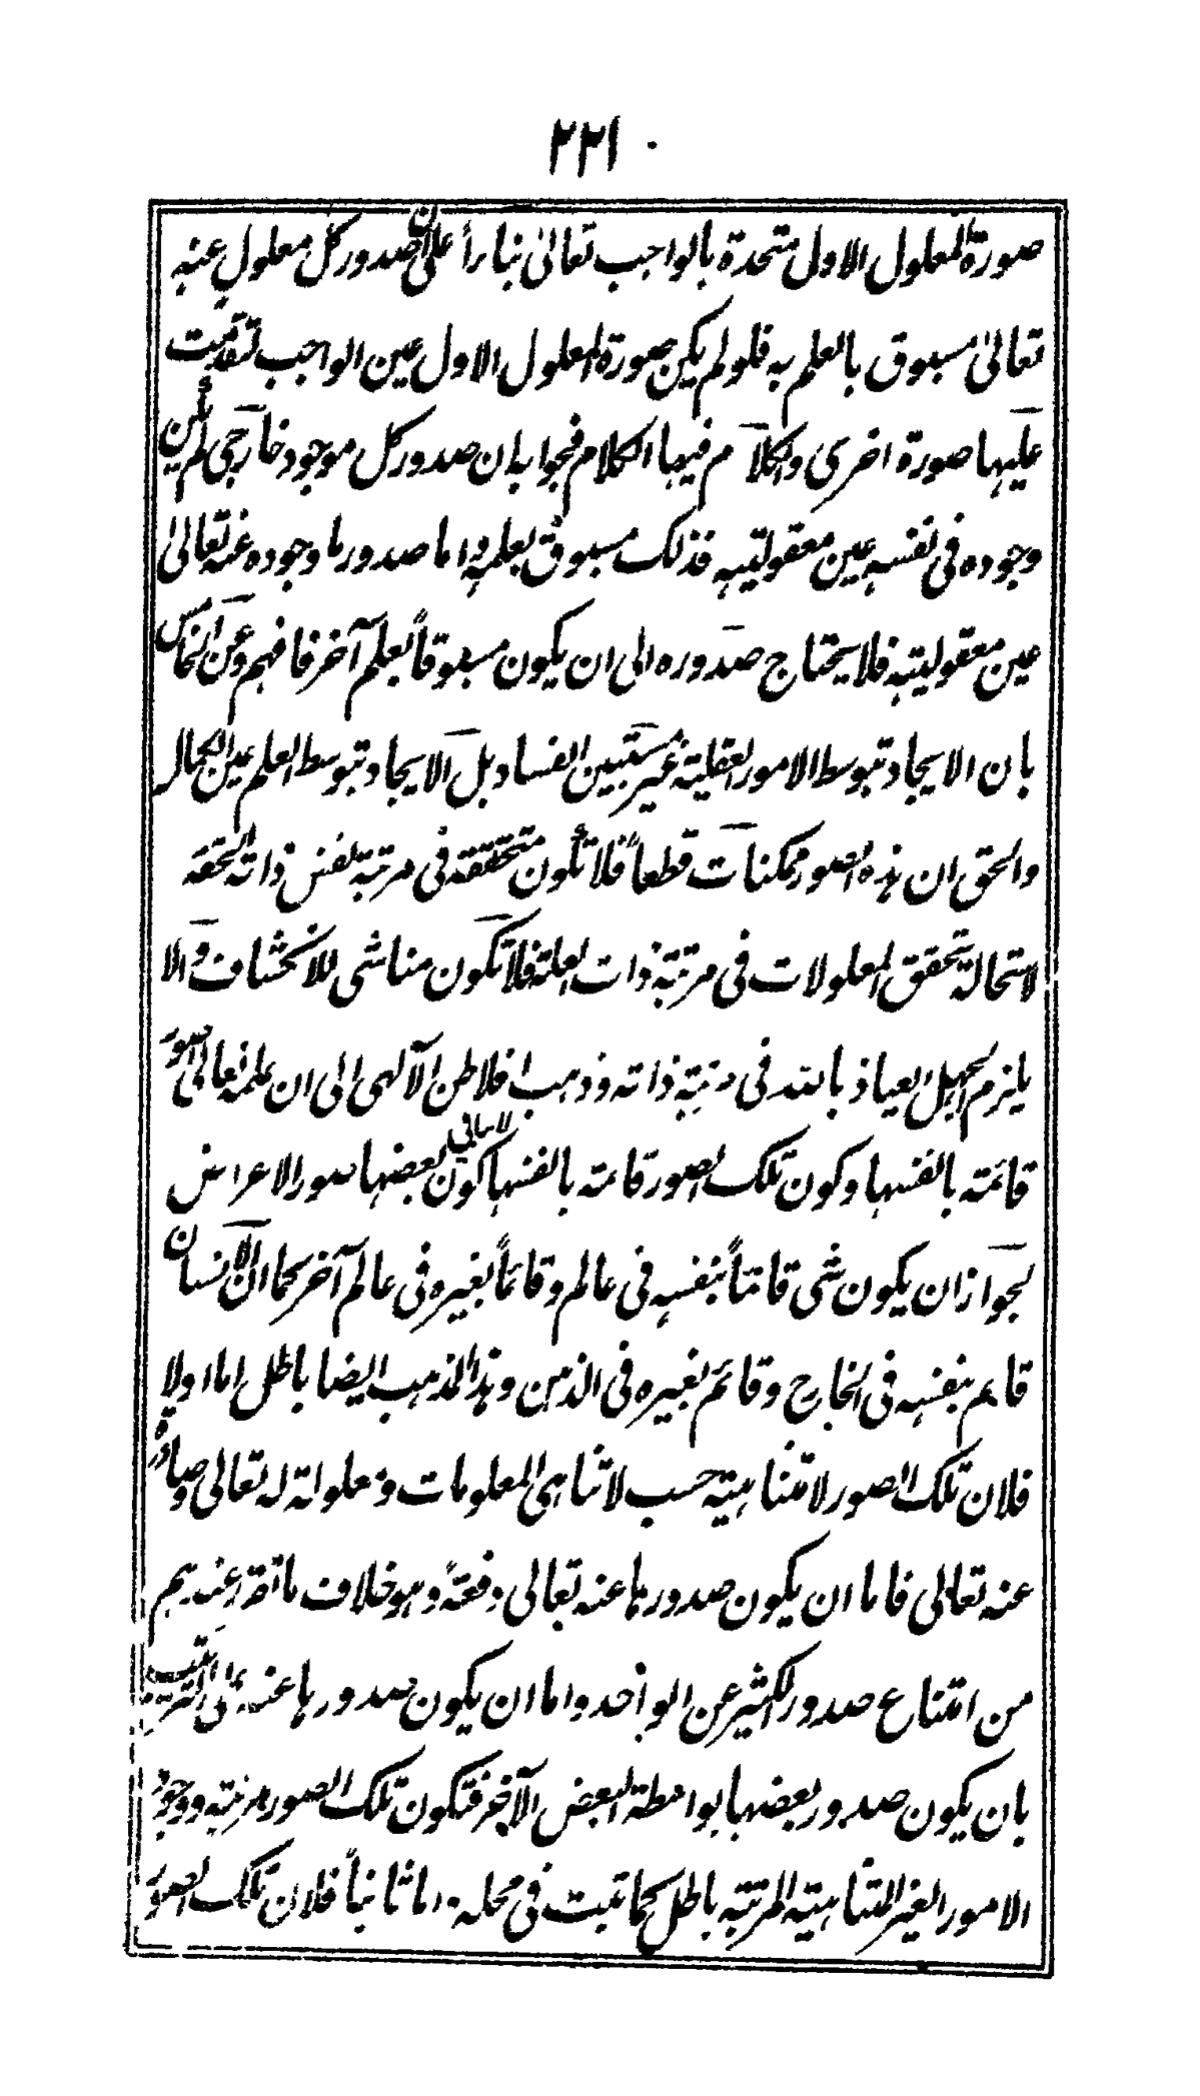 ٢٢١
صورة المعلول الاول متحدة بالواجب تعالىٰ بناءاً على ان صدور كل معلول عنه
تعالىٰ مسبوق بالعلم به فلو لم يكن صورة المعلول الاول عين الواجب تقدمت
عليها صورة اخرى والكلام فيها الكلام فجوابه ان صدور كل موجود خارجى لم يكن
وجوده فى نفسه عين معقوليته فذلك مسبوق بعلمه واما صدور ما وجوده عنه تعالىٰ
عين معقوليته فلا يحتاج صدوره الى ان يكون مسبوقاً بعلم آخر فافهم وعن الخامس
بان الايجاد بتوسط الامور العقلية غير مستبين الفساد بل الايجاد بتوسط العلم عين الكمال
والحق ان هذه الصور ممكنات قطعاً فلا تكون متحققة فى مرتبة نفس ذاته الحقة
لاستحالة تحقق المعلولات فى مرتبة ذات العلة فلا تكون مناشى للانكشاف والا
يلزم الجهل العياذ بالله فى مرتبة ذاته وذهب افلاطن الآلهى الى ان علمه تعالى صور
قائمة بانفسها وكون تلك الصور قائمة بانفسها لا ينافى كون بعضها صور الاعراض
لجواز ان يكون شى قائماً بنفسه فى عالم وقائماً بغيره فى عالم آخر كما ان الانسان
قايم بنفسه فى الخارج وقائم بغيره فى الذهن وهذا المذهب ايضا باطل اما اولا
فلان تلك الصور لا متناهية حسب لا تناهى المعلومات ومعلولة له تعالى وصادرة
عنه تعالى فاما ان يكون صدورها عنه تعالى دفعةً وهو خلاف ما تقرر عندهم
من امتناع صدور الكثير عن الواحد واما ان يكون صدورها عنه على الترتيب
بان يكون صدور بعضها بواسطة البعض الآخر فتكون تلك الصور مرتبة ووجود
الامور الغير المتناهية المرتبة باطل كما ثبت فى محله۰ اما ثانياً فلان تلك الصور